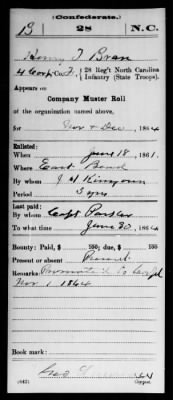 (Confederate.)
B 28 N.C.
Henry T. Bran
4 Corp Co. F, 28 Reg't North Carolina
Infantry (State Troops).
Appears on
Company Muster Roll
of the organization named above,
for Nov & Dec, 1864
Enlisted:
When June 18, 1861.
Where East Bend
By whom
Period 3 yrs
Last paid:
By whom Capt
To what time June 30, 1864
Bounty: Paid, $ 100; due, $ 100
Present or absent Present
Remarks: Promoted to Corpl
Nov 1 1864
Book mark:
(642) Copyist.